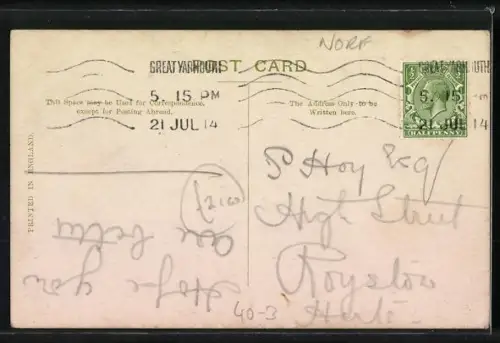 NORF
POST CARD
GREAT YARMOUTH
5. 15 PM
21 JUL 14
GREAT YARMOUTH
5. 15
21 JUL 14
HALFPENNY
This Space may be Used for Correspondence,
except for Posting Abroad.
The Address Only to be
Written here.
PRINTED IN ENGLAND.
Hope you
are better
P Hoy Esq
High Street
Royston
Herts
40-3